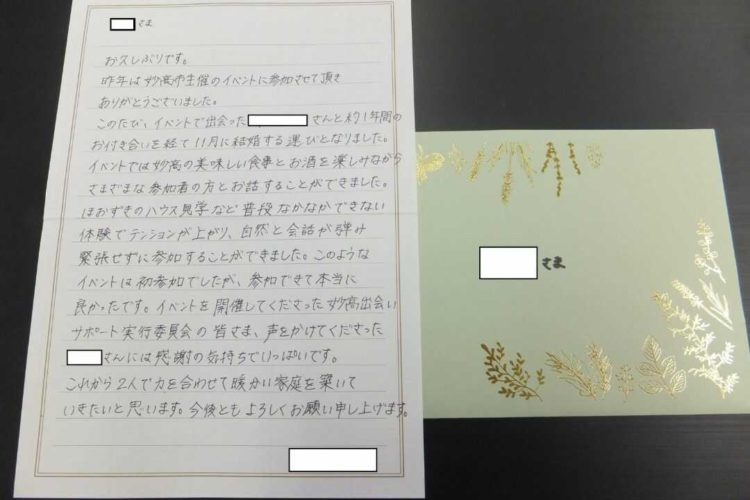 さま
お久しぶりです。
昨年は妙高市主催のイベントに参加させて頂き
ありがとうございました。
このたび、イベントで出会った さんと約1年間の
お付き合いを経て11月に結婚する運びとなりました。
イベントでは妙高の美味しい食事とお酒を楽しみながら
さまざまな参加者の方とお話することができました。
ほおずきのハウス見学など普段なかなかできない
体験でテンションが上がり、自然と会話が弾み
緊張せずに参加することができました。このような
イベントは初参加でしたが、参加できて本当に
良かったです。イベントを開催してくださった妙高出会い
サポート実行委員会の皆さま、声をかけてくださった
さんには感謝の気持ちでいっぱいです。
これから2人で力を合わせて暖かい家庭を築いて
いきたいと思います。今後ともよろしくお願い申し上げます。
さま